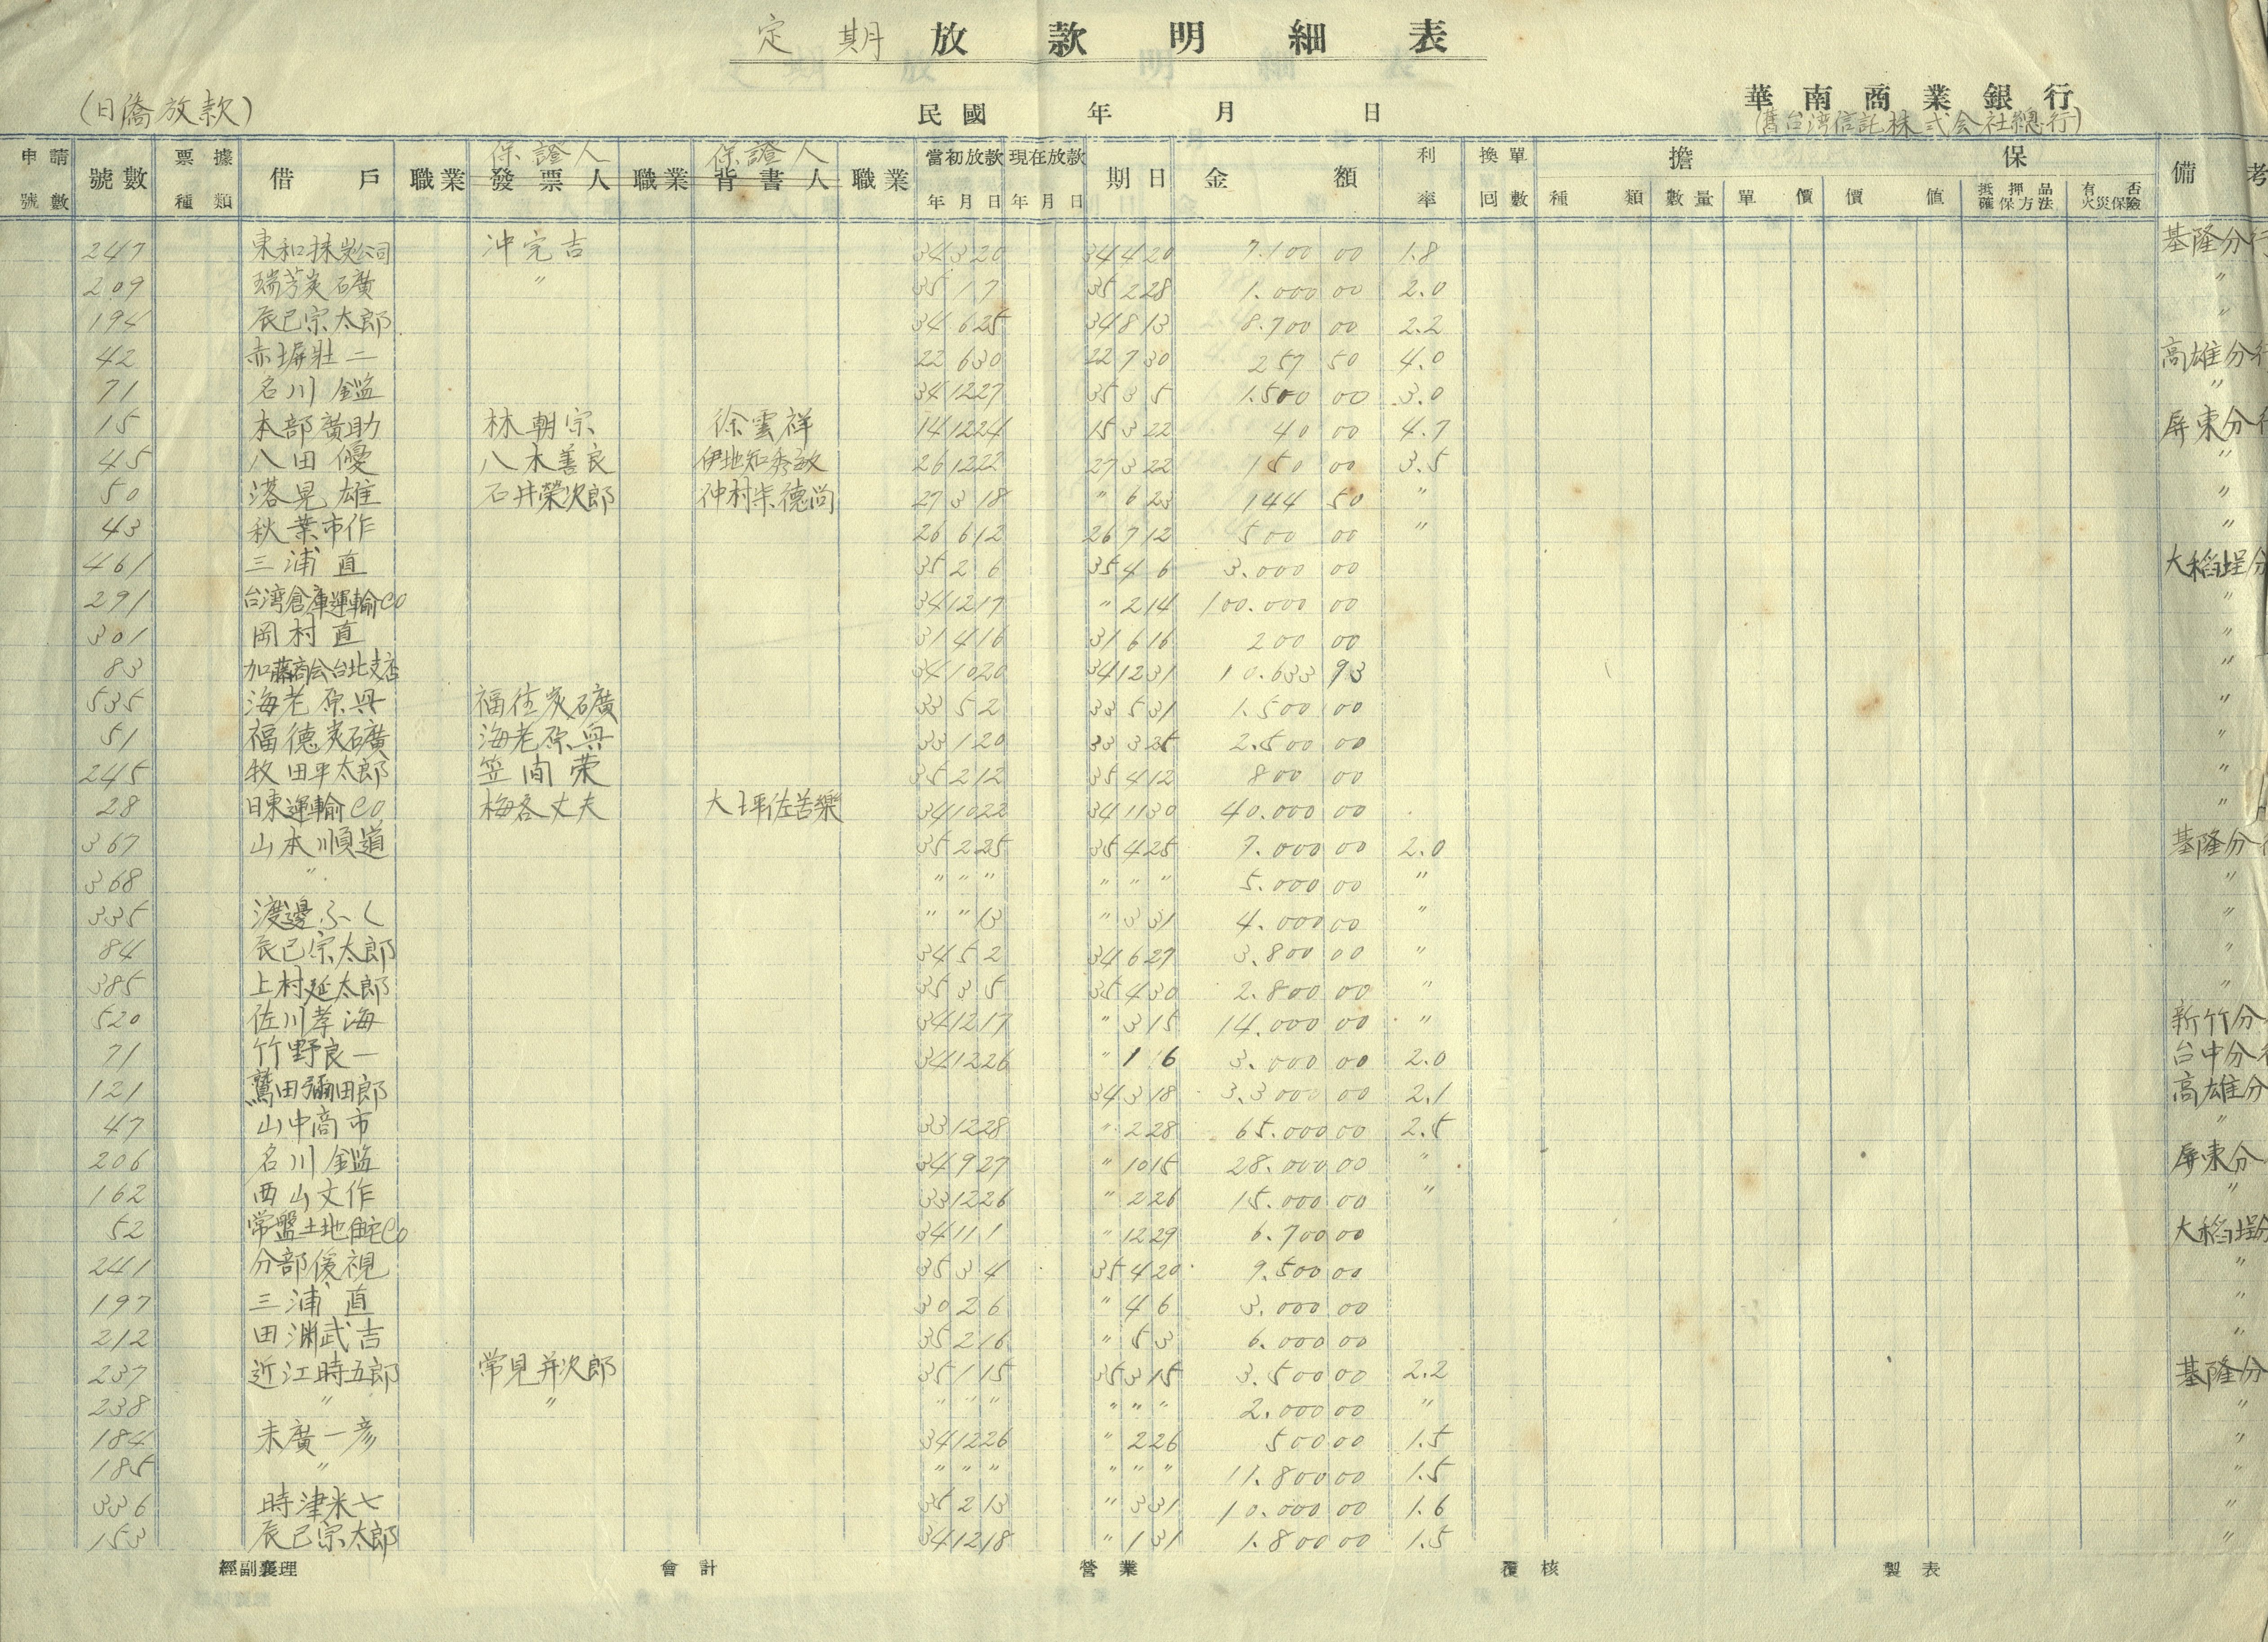 定期放款明細表
(日僑放款)
民國 年 月 日
華南商業銀行
(舊台湾信託株式会社總行)
申請號數 號數 票據種類 借戶 職業 保證人 發票人 職業 保證人 背書人 職業 當初放款年月日 現在放款年月日 期日 金額 利率 換單回數 擔保 種類 數量 單價 價值 抵押品確保方法 有否火災保險 備考
247 東和採炭公司 沖完吉 34 3 20 34 4 20 7.100 00 1.8 基隆分行
209 瑞芳炭礦 〃 35 1 7 35 2 28 1.000 00 2.0 〃
194 辰已宗太郎 34 6 25 34 8 13 8.700 00 2.2 〃
42 赤塀壯二 22 6 30 22 7 30 257 50 4.0 高雄分行
71 名川鑑 34 12 27 35 3 5 1.500 00 3.0 〃
15 本部廣助 林朝宗 徐雲祥 14 12 24 15 3 22 40 00 4.7 屏東分行
45 八田優 八木善良 伊地知秀敏 26 12 22 27 3 22 150 00 3.5 〃
50 落晃雄 石井榮次郎 仲村柴德尚 27 3 18 〃 6 23 144 50 〃 〃
43 秋葉市作 26 6 12 26 7 12 500 00 〃 〃
461 三浦直 35 2 6 35 4 6 3.000 00 大稻埕分
291 台湾倉庫運輸CO 34 12 17 〃 2 14 100.000 00 〃
301 岡村直 31 4 16 31 6 16 200 00 〃
83 加藤商会台北支店 34 10 20 34 12 31 10.633 93 〃
535 海老原興 福住炭礦 33 5 2 33 5 31 1.500 00 〃
51 福德炭礦 海老原興 33 1 20 33 3 25 2.500 00 〃
245 牧田平太郎 笠間荣 35 2 12 35 4 12 800 00 〃
28 日東運輸CO 梅各丈夫 大坪佐苦樂 34 10 22 34 11 30 40.000 00 〃
367 山本順道 35 2 25 35 4 25 7.000 00 2.0 基隆分行
368 〃 〃 〃 〃 〃 〃 〃 5.000 00 〃 〃
335 渡邊ふく 〃 〃 13 〃 3 31 4.000 00 〃 〃
84 辰已宗太郎 34 5 2 34 6 27 3.800 00 〃 〃
385 上村延太郎 35 3 5 35 4 30 2.800 00 〃 〃
520 佐川孝海 34 12 17 〃 3 15 14.000 00 〃 新竹分
71 竹野良一 34 12 26 〃 1 16 3.000 00 2.0 台中分行
121 鷲田彌田郎 34 3 18 3.3000 00 2.1 高雄分
47 山中商市 33 12 28 〃 2 28 65.000 00 2.5 〃
206 名川鑑 34 9 27 〃 10 15 28.000 00 〃 屏東分
162 西山文作 33 12 26 〃 2 26 15.000 00 〃 〃
52 常盤土地住宅CO 34 11 1 〃 12 29 6.700 00 大稻埕分
241 分部俊視 35 3 4 35 4 20 9.500 00 〃
197 三浦直 30 2 6 〃 4 6 3.000 00 〃
212 田渊武吉 35 2 16 〃 5 3 6.000 00 〃
237 近江時五郎 常見并次郎 35 1 15 35 3 15 3.500 00 2.2 基隆分
238 〃 〃 〃 〃 〃 〃 〃 〃 2.000 00 〃 〃
184 末廣一彦 34 12 26 〃 2 26 500 00 1.5 〃
185 〃 〃 〃 〃 〃 〃 〃 11.800 00 1.5 〃
336 時津米七 35 2 13 〃 3 31 10.000 00 1.6 〃
153 辰已宗太郎 34 12 18 〃 1 31 1.800 00 1.5 〃
經副襄理 會計 營業 覆核 製表